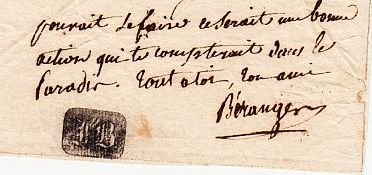 pourait le faire ce serait une bonne
action qui te compterait dans le
Paradis. Tout a toi, ton ami
Béranger